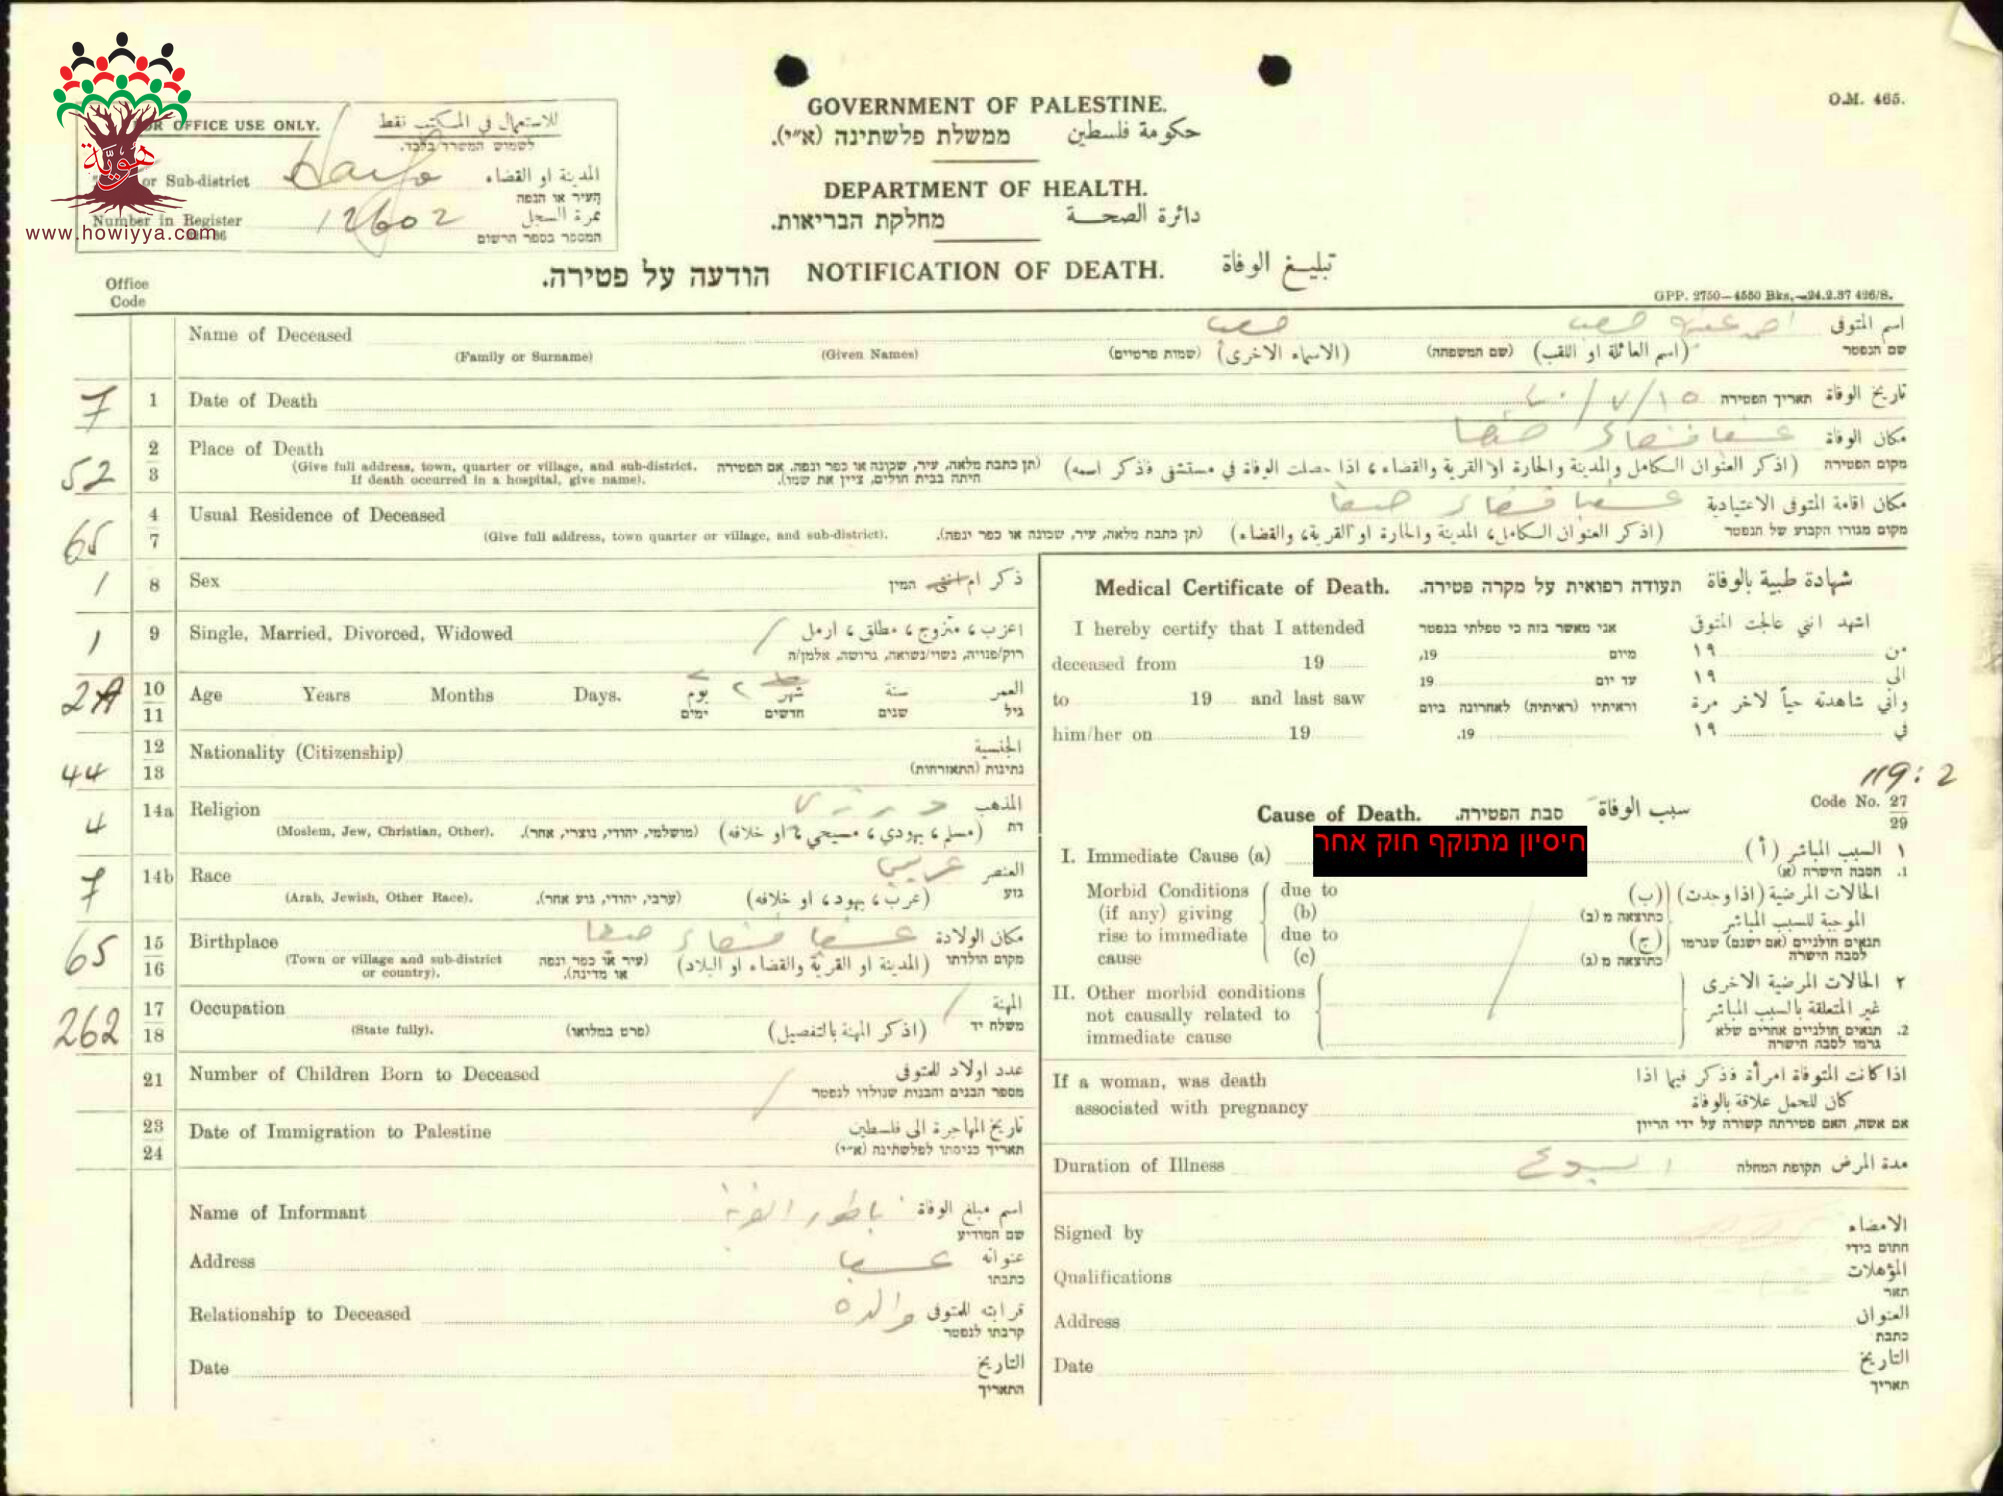 GOVERNMENT OF PALESTINE.
حكومة فلسطين ממשלת פלשתינה (א״י).
DEPARTMENT OF HEALTH.
دائرة الصحة מחלקת הבריאות.
O.M. 465.
OFFICE USE ONLY. للاستعمال في المكتب فقط
לשמוש המשרד בלבד.
or Sub-district Haifa المدينة او القضاء
העיר או הנפה
Number in Register 12602 نمرة السجل
המספר בספר הרשום
هوية
www.howiyya.com
הודעה על פטירה. NOTIFICATION OF DEATH. تبليغ الوفاة
Office Code
GPP. 2750—4550 Bks.—24.2.37 426/S.
Name of Deceased اسم المتوفى
(Family or Surname) (Given Names) (שמות פרטיים) (الاسماء الاخرى) (שם המשפחה) (اسم العائلة او اللقب) שם הנפטר
7 1 Date of Death ١٥/٧/ תאריך הפטירה تاريخ الوفاة
2 Place of Death عسفيا قضاء حيفا مكان الوفاة
52 3 (Give full address, town, quarter or village, and sub-district. (תן כתבת מלאה, עיר, שכונה או כפר ונפה. אם הפטירה (اذكر العنوان الكامل والمدينة والحارة او القرية والقضاء، اذا حصلت الوفاة في مستشفى فذكر اسمه) מקום הפטירה
If death occurred in a hospital, give name). היתה בבית חולים, ציין את שמו).
65 4 7 Usual Residence of Deceased عسفيا قضاء حيفا مكان اقامة المتوفى الاعتيادية
(Give full address, town quarter or village, and sub-district). (תן כתבת מלאה, עיר, שכונה או כפר ונפה). (اذكر العنوان الكامل، المدينة والحارة او القرية، والقضاء) מקום מגורו הקבוע של הנפטר
1 8 Sex המין ذكر ام انثى
1 9 Single, Married, Divorced, Widowed اعزب، متزوج، مطلق، ارمل
רוק/פנויה, נשוי/נשואה, גרושה, אלמן/ה
10 11 Age Years Months Days. يوم شهر سنة العمر
ימים חדשים שנים גיל
44 12 13 Nationality (Citizenship) الجنسية
נתינות (התאזרחות)
4 14a Religion درزي المذهب
(Moslem, Jew, Christian, Other). (מושלמי, יהודי, נוצרי, אחר). (مسلم، يهودي، مسيحي، او خلافه) דת
7 14b Race عربي العنصر
(Arab, Jewish, Other Race). (ערבי, יהודי, גזע אחר). (عرب، يهود، او خلافه) גזע
65 15 16 Birthplace عسفيا قضاء حيفا مكان الولادة
(Town or village and sub-district or country). (עיר או כפר ונפה או מדינה). (المدينة او القرية والقضاء او البلاد) מקום הולדתו
262 17 18 Occupation المهنة
(State fully). (פרט במלואו) (اذكر المهنة بالتفصيل) משלח יד
21 Number of Children Born to Deceased عدد اولاد المتوفى
מספר הבנים והבנות שנולדו לנפטר
23 24 Date of Immigration to Palestine تاريخ المهاجرة الى فلسطين
תאריך כניסתו לפלשתינה (א״י)
Name of Informant اسم مبلغ الوفاة
שם המודיע
Address عسفيا عنوانه
כתבתו
Relationship to Deceased والده قرابته للمتوفى
קרבתו לנפטר
Date التاريخ
התאריך
Medical Certificate of Death. תעודה רפואית על מקרה פטירה. شهادة طبية بالوفاة
I hereby certify that I attended אני מאשר בזה כי טפלתי בנפטר اشهد انني عالجت المتوفى
deceased from 19 מיום 19, من ١٩
to 19 and last saw עד יום 19 الى ١٩
וראיתיו (ראיתיה) לאחרונה ביום واني شاهدته حياً لآخر مرة
him/her on 19 19. في ١٩
119:2
Cause of Death. סבת הפטירה. سبب الوفاة Code No. 27 29
I. Immediate Cause (a) חיסיון מתוקף חוק אחר ١ السبب المباشر (أ)
1. הסבה הישרה (א)
Morbid Conditions (if any) giving rise to immediate cause
due to (b) כתוצאה מ (ב) (ب)
due to (c) כתוצאה מ (ג) (ج)
الحالات المرضية (اذا وجدت) الموجبة للسبب المباشر
תנאים חולניים (אם ישנם) שגרמו לסבה הישרה
II. Other morbid conditions not causally related to immediate cause
٢ الحالات المرضية الاخرى غير المتعلقة بالسبب المباشر
2. תנאים חולניים אחרים שלא גרמו לסבה הישרה
If a woman, was death associated with pregnancy
اذا كانت المتوفاة امرأة فذكر فيما اذا كان للحمل علاقة بالوفاة
אם אשה, האם פטירתה קשורה על ידי הריון
Duration of Illness اسبوع תקופת המחלה مدة المرض
Signed by الامضاء
חתום בידי
Qualifications المؤهلات
תאר
Address العنوان
כתבת
Date التاريخ
תאריך